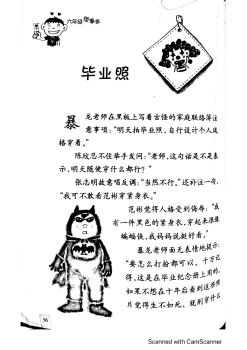 六年级怪事多
毕业照
暴龙老师在黑板上写着古怪的家庭联络簿注
意事项:“明天拍毕业照,自行设计个人风
格穿着。”
陈欣忍不住举手发问:“老师,这句话是不是表
示,明天随便穿什么都行?”
张志明故意唱反调:“当然不行。”还补注一句,
“我可不敢看范彬穿紧身衣。”
范彬觉得人格受到侮辱:“我
有一件黑色的紧身衣,穿起来很像
蝙蝠侠,我妈妈说挺好看。”
暴龙老师面无表情地提示:
“要怎么打扮都可以,千万记
得,这是在毕业纪念册上用的,
如果不想在十年后看到这些照
片觉得生不如死,就别穿什么
36
Scanned with CamScanner